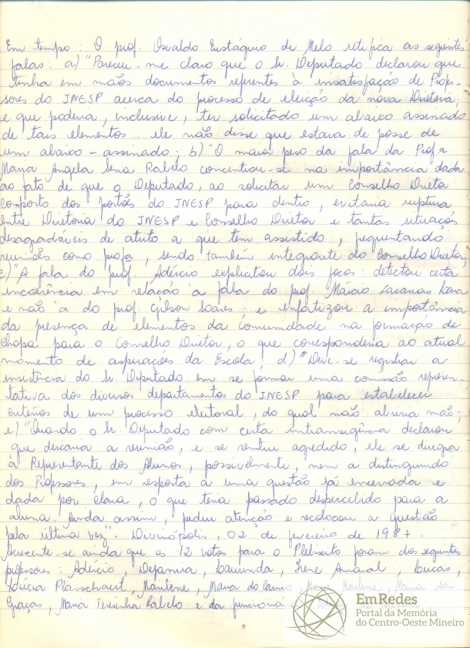 Em tempo: O prof. Osvaldo Eustáquio de Melo retifica as seguintes
falas: a) "Pareceu-me claro que o Sr. Deputado declarou que
tenha em mãos documentos referentes à insatisfação de Profes-
sores do INESP acerca do processo de eleição da nova Diretoria,
e que poderia, inclusive, ter solicitado um abaixo assinado
de tais elementos ele não disse que estava de posse de
um abaixo-assinado; b) "O maior peso da fala da Profª
Maria Angela Sena Rabelo concentrou-se na importância dada
ao fato de que o Deputado, ao solicitar um Conselho Diretor
composto dos portões do INESP para dentro, evitaria ruptura
entre Diretoria do INESP e Conselho Diretor e tantas situações
desagradáveis de atrito a que tem assistido, frequentando
reuniões como profa, sendo também integrante do Conselho Diretor;
c) "A fala do prof. Adércio explicitou dois focos: detectou certa
incoerência em relação à fala do prof. Márcio Lacanas Lara
e não a do prof. Gilson Soares; e enfatizou a importância
da presença de elementos da comunidade na formação de
chapa para o Conselho Diretor, o que corresponderia ao atual
momento de aspirações da Escola; d) "Deve-se registrar a
insistência do Sr. Deputado em se formar uma comissão represen-
tativa dos diversos departamentos do INESP para estabelecer
critérios de um processo eleitoral, do qual não abriria mão;
e) "Quando o Sr. Deputado com certa intransigência declarou
que encerraria a reunião, e se sentiu agredido, ele se dirigia
à Representante dos Alunos, possivelmente, nem a distinguindo
dos Professores, em resposta a uma questão já encerrada e
dada por clara, o que teria passado despercebido para a
aluna. Ainda assim, pediu atenção e recolocou a questão
pela última vez". Divinópolis, 02 de fevereiro de 1987.
Acrescente-se ainda que os 12 votos para o Plebiscito foram dos seguintes
professores: Adércio, Dejanira, Lucinda, Irene Amaral, Lucas,
Lúcia Plasschaert, Marilene, Maria do Carmo, Maria Marlene, Maria das
Graças, Maria Teresinha Rabelo e da funcionária
EmRedes
Portal da Memória
do Centro-Oeste Mineiro